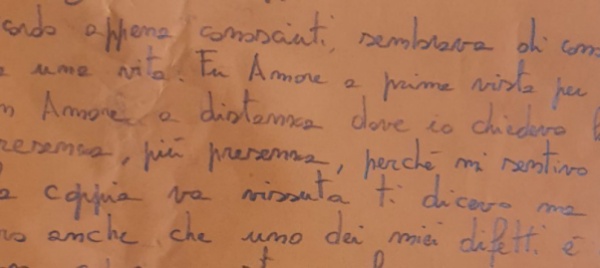 cordo appena conosciuti, sembrava di cono
una vita. Fu Amore a prima vista per
Amore a distanza dove io chiedevo
resenza, più presenza, perché mi sentivo
coppia va vissuta ti dicevo ma
anche che uno dei miei difetti é